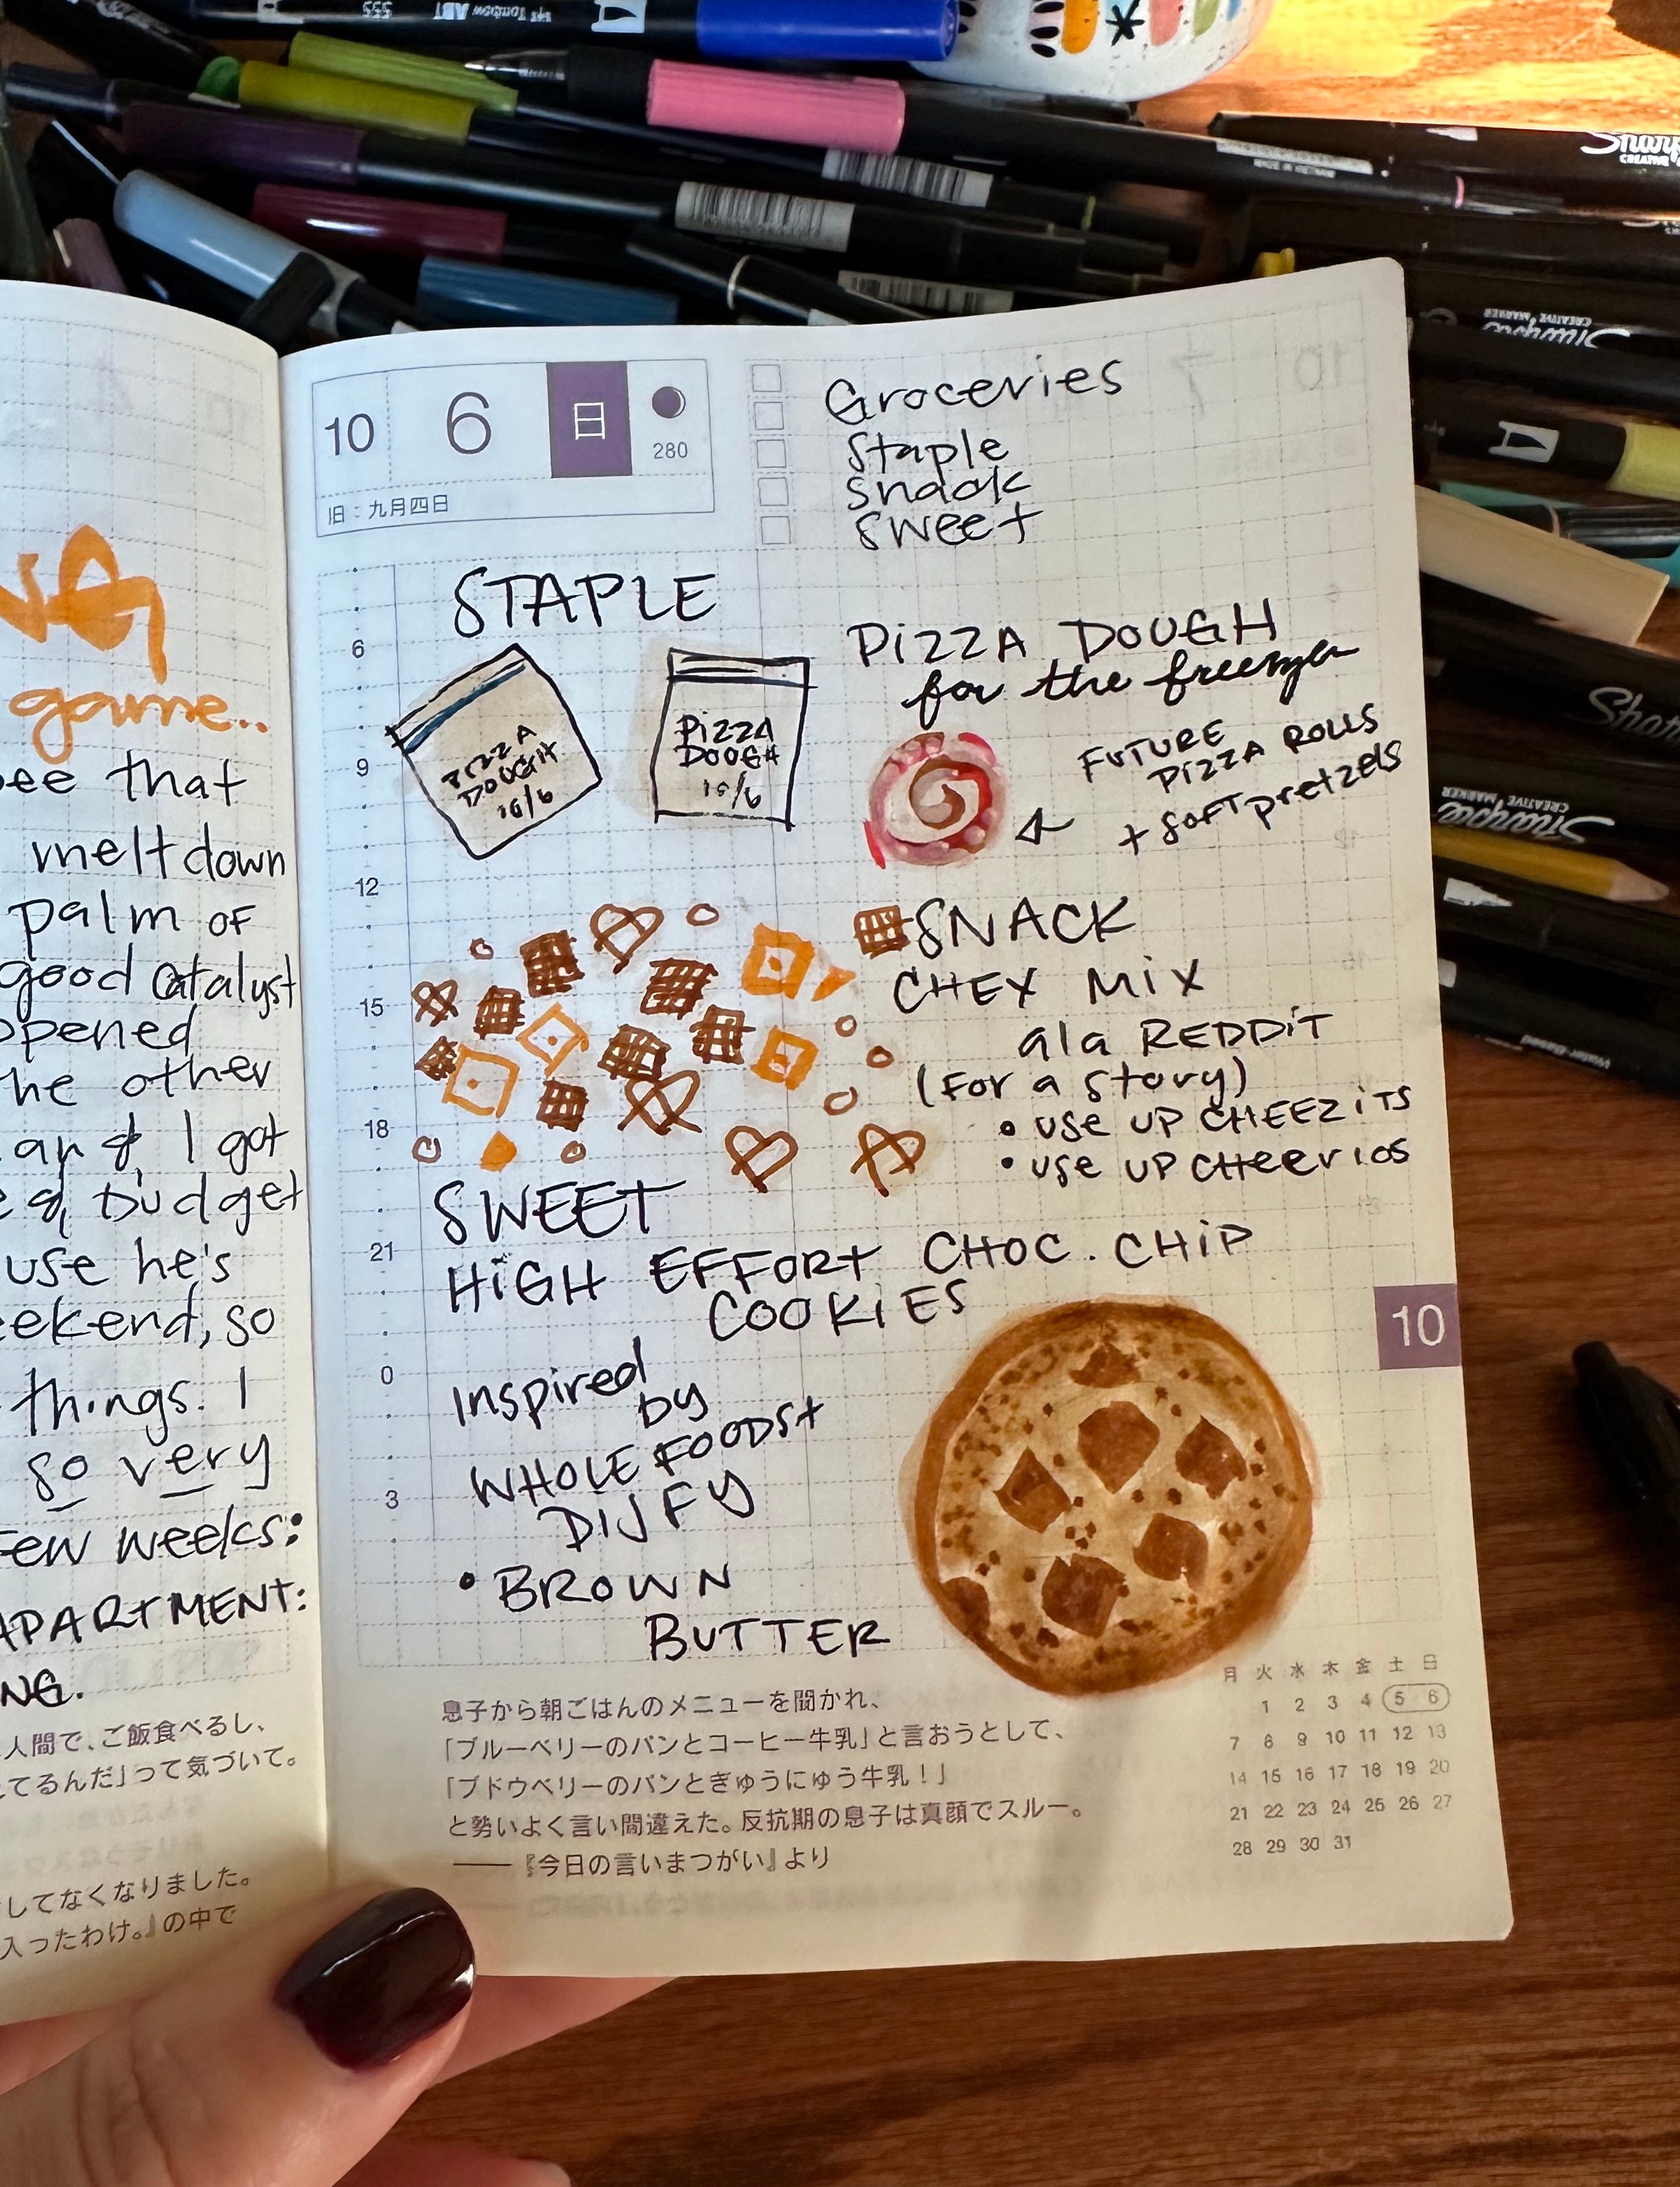 ABT
Sharpie
CREATIVE MARKER
Sharpie
CREATIVE MARKER
Sharpie
CREATIVE MARKER
Water-Based
NG
game..
see that
meltdown
palm of
good catalyst
opened
the other
and I got
& budget
use he's
eekend, so
things. I
so very
few weeks:
APARTMENT:
NG.
人間で、ご飯食べるし、
てるんだ」って気づいて。
してなくなりました。
入ったわけ。』の中で
10 6 日
280
旧：九月四日
Groceries
Staple
snack
sweet
STAPLE
PIZZA DOUGH
for the freezer
PIZZA
DOUGH
10/6
PIZZA
DOUGH
10/6
FUTURE
PIZZA ROLLS
+ SOFT pretzels
SNACK
CHEX MIX
ala REDDIT
(for a story)
• USE UP CHEEZ ITS
• USE UP CHEERIOS
SWEET
HIGH EFFORT CHOC. CHIP
COOKIES
Inspired
by
WHOLE FOODS +
• BROWN
BUTTER
6
9
12
15
18
21
0
3
10
息子から朝ごはんのメニューを聞かれ、
「ブルーベリーのパンとコーヒー牛乳」と言おうとして、
「ブドウベリーのパンとぎゅうにゅう牛乳！」
と勢いよく言い間違えた。反抗期の息子は真顔でスルー。
——『今日の言いまつがい』より
月 火 水 木 金 土 日
1 2 3 4 5 6
7 8 9 10 11 12 13
14 15 16 17 18 19 20
21 22 23 24 25 26 27
28 29 30 31